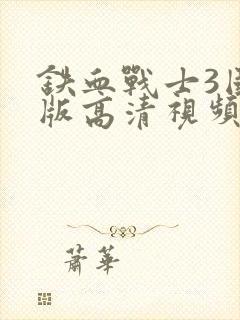 鉄血戰士3
版高清視頻
蕭華